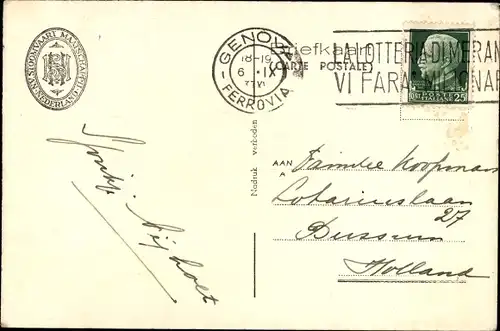 N.V. STOOMVAART MAATSCHAPPIJ "NEDERLAND"
Briefkaart
(CARTE POSTALE)
GENOVA
18-19
6·IX
FERROVIA
LA LOTTERIA DI MERAN
VI FARA' MILIONAR
25
Nadruk verboden
AAN
A
Familie Koopmans
Lothariuslaan
27
Bussum
Holland